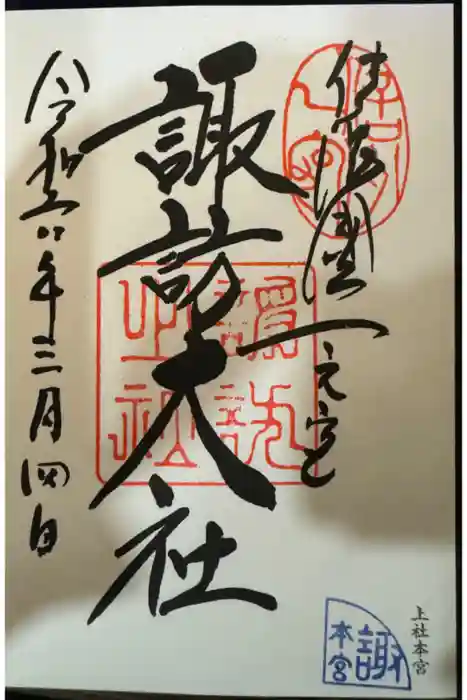 信濃國一之宮
諏訪大社
令和六年三月四日
上社本宮
諏
本宮